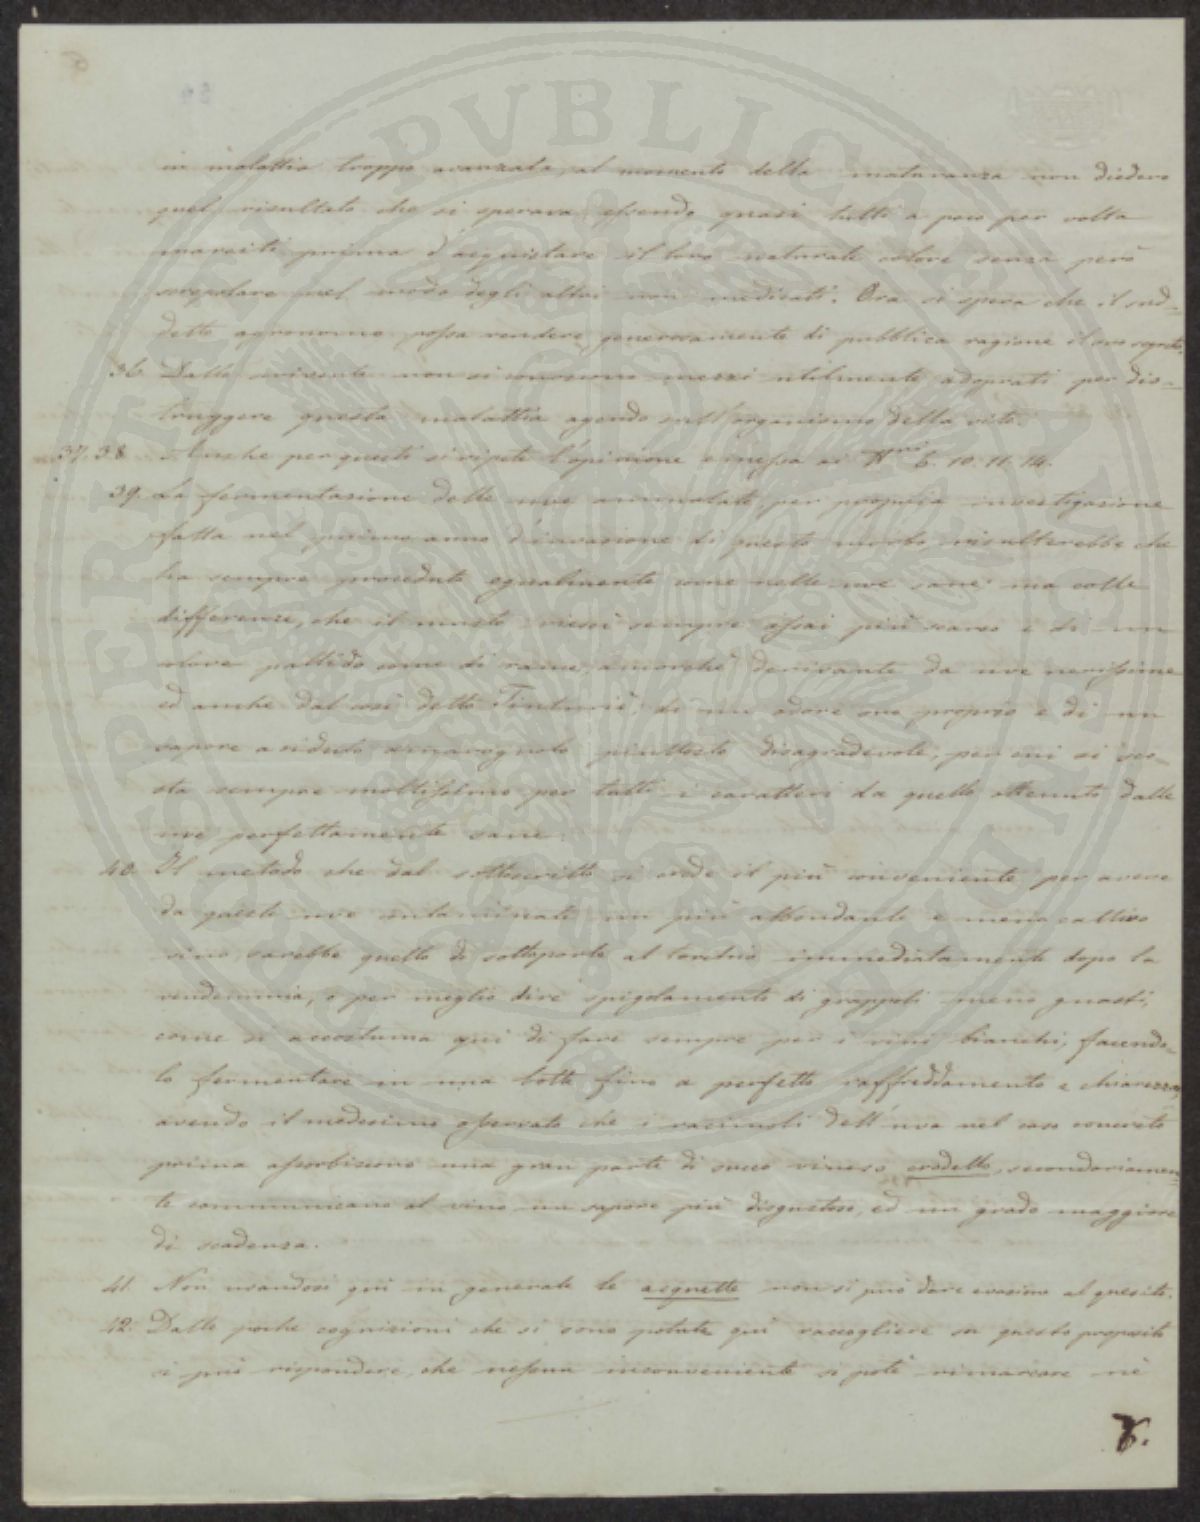 in malattia troppo avanzata, al momento della maturanza non diedero
quel risultato che si sperava essendo quasi tutti a poco per volta
marciti prima d'acquistare il loro naturale colore senza però
screpolare nel modo degli altri non medicati. Ora si spera che il sud-
detto agronomo possa rendere generosamente di pubblica ragione il suo segreto.
36. Dallo scrivente non si conoscono mezzi utilmente adoprati per dis-
truggere questa malattia agendo sull'organismo della vite.
37. 38. Anche per questi si ripete l'opinione emessa ai N.ri 6. 10. 11. 14.
39. La fermentazione delle uve ammalate, per propria investigazione
fatta nel primo anno d'invasione di questo morbo risulterebbe che
ha sempre proceduto egualmente come nelle uve sane: ma colle
differenze, che il mosto riescì sempre assai più scarso e di un
colore pallido come di rame, ancorchè derivante da uve nerissime
ed anche dal così detto Tinturiè; di un odore suo proprio e di un
sapore acidulo amarognolo piuttosto disagradevole; per cui si sco-
sta sempre moltissimo per tutti i caratteri da quello ottenuto dalle
uve perfettamente sane.
40. Il metodo che dal sottoscritto si crede il più conveniente per avere
da queste uve contaminate un più abbondante e meno cattivo
vino, sarebbe quello di sottoporle al torchio immediatamente dopo la
vendemmia, o per meglio dire spigolamento di grappoli meno guasti,
come si accostuma qui di fare sempre per i vini bianchi, facendo-
lo fermentare in una botte fino a perfetto raffreddamento e chiarezza,
avendo il medesimo osservato che i racimoli dell'uva nel caso concreto
prima assorbiscono una gran parte di succo vinoso crodello, secondariamen-
te communicano al vino un sapore più disgustoso, ed un grado maggiore
di scadenza.
41. Non usandosi qui in generale le acquette non si può dare evasione al quesito.
42. Dalle poche cognizioni che si sono potute qui raccogliere su questo proposito
si può rispondere, che nessun inconveniente si potè rimarcare nè